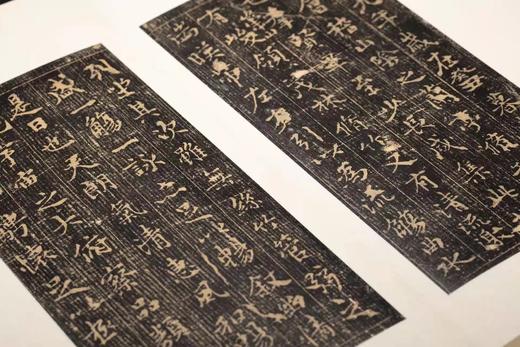 九年歲在癸
稽山陰之蘭亭脩
羣賢畢至少長咸集此
峻領茂林脩竹又有清流激
湍暎帶左右引以為流觴曲水
列坐其次雖無絲竹管弦之
盛一觴一詠亦足以暢敘幽情
是日也天朗氣清惠風和暢
宇宙之大俯察品類
騁懷足以